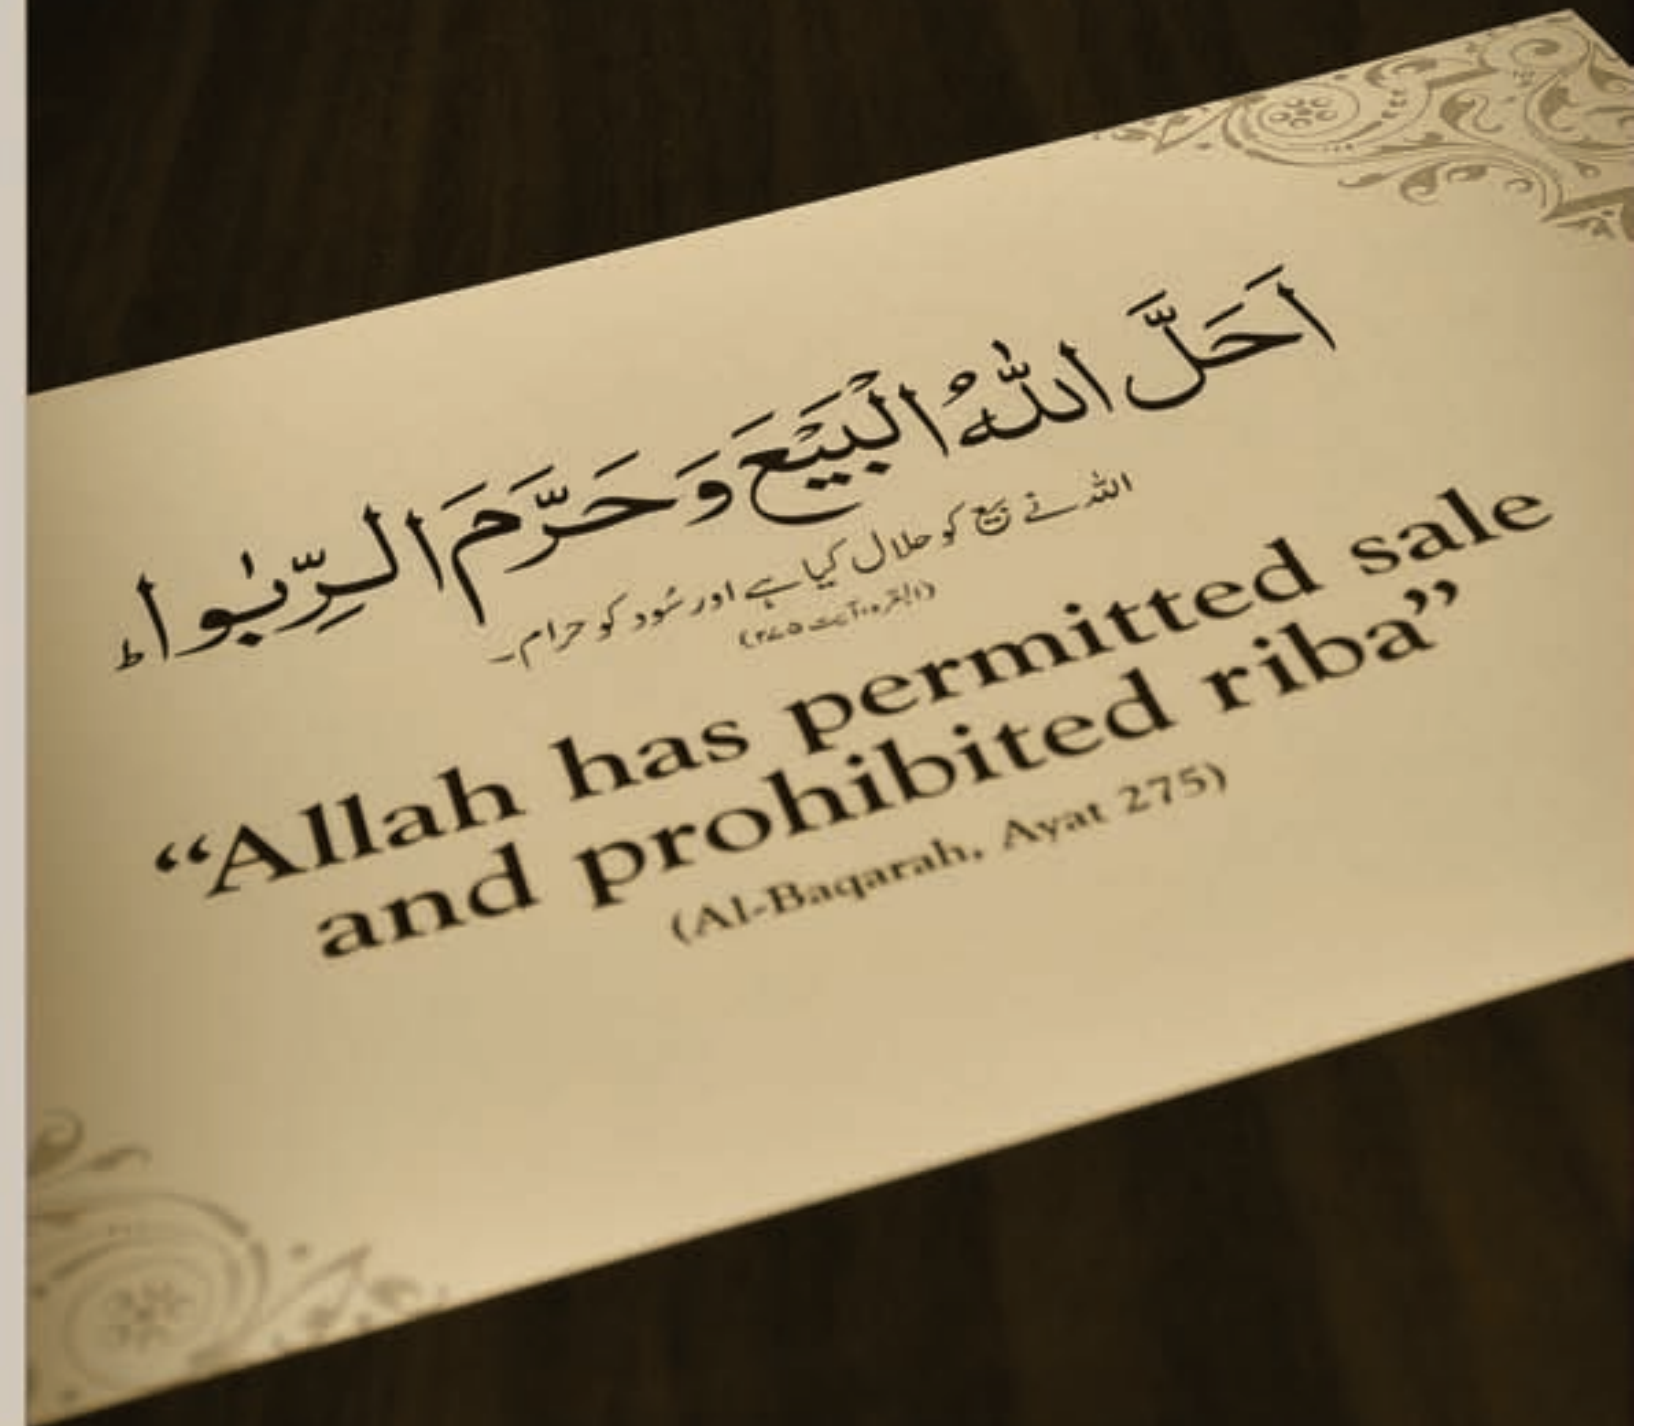 اَحَلَّ اللّٰهُ الْبَيْعَ وَحَرَّمَ الرِّبٰوا ؕ
اللہ نے بیع کو حلال کیا ہے اور سُود کو حرام۔
(البقرہ، آیت ۲۷۵)
“Allah has permitted sale
and prohibited riba”
(Al-Baqarah, Ayat 275)